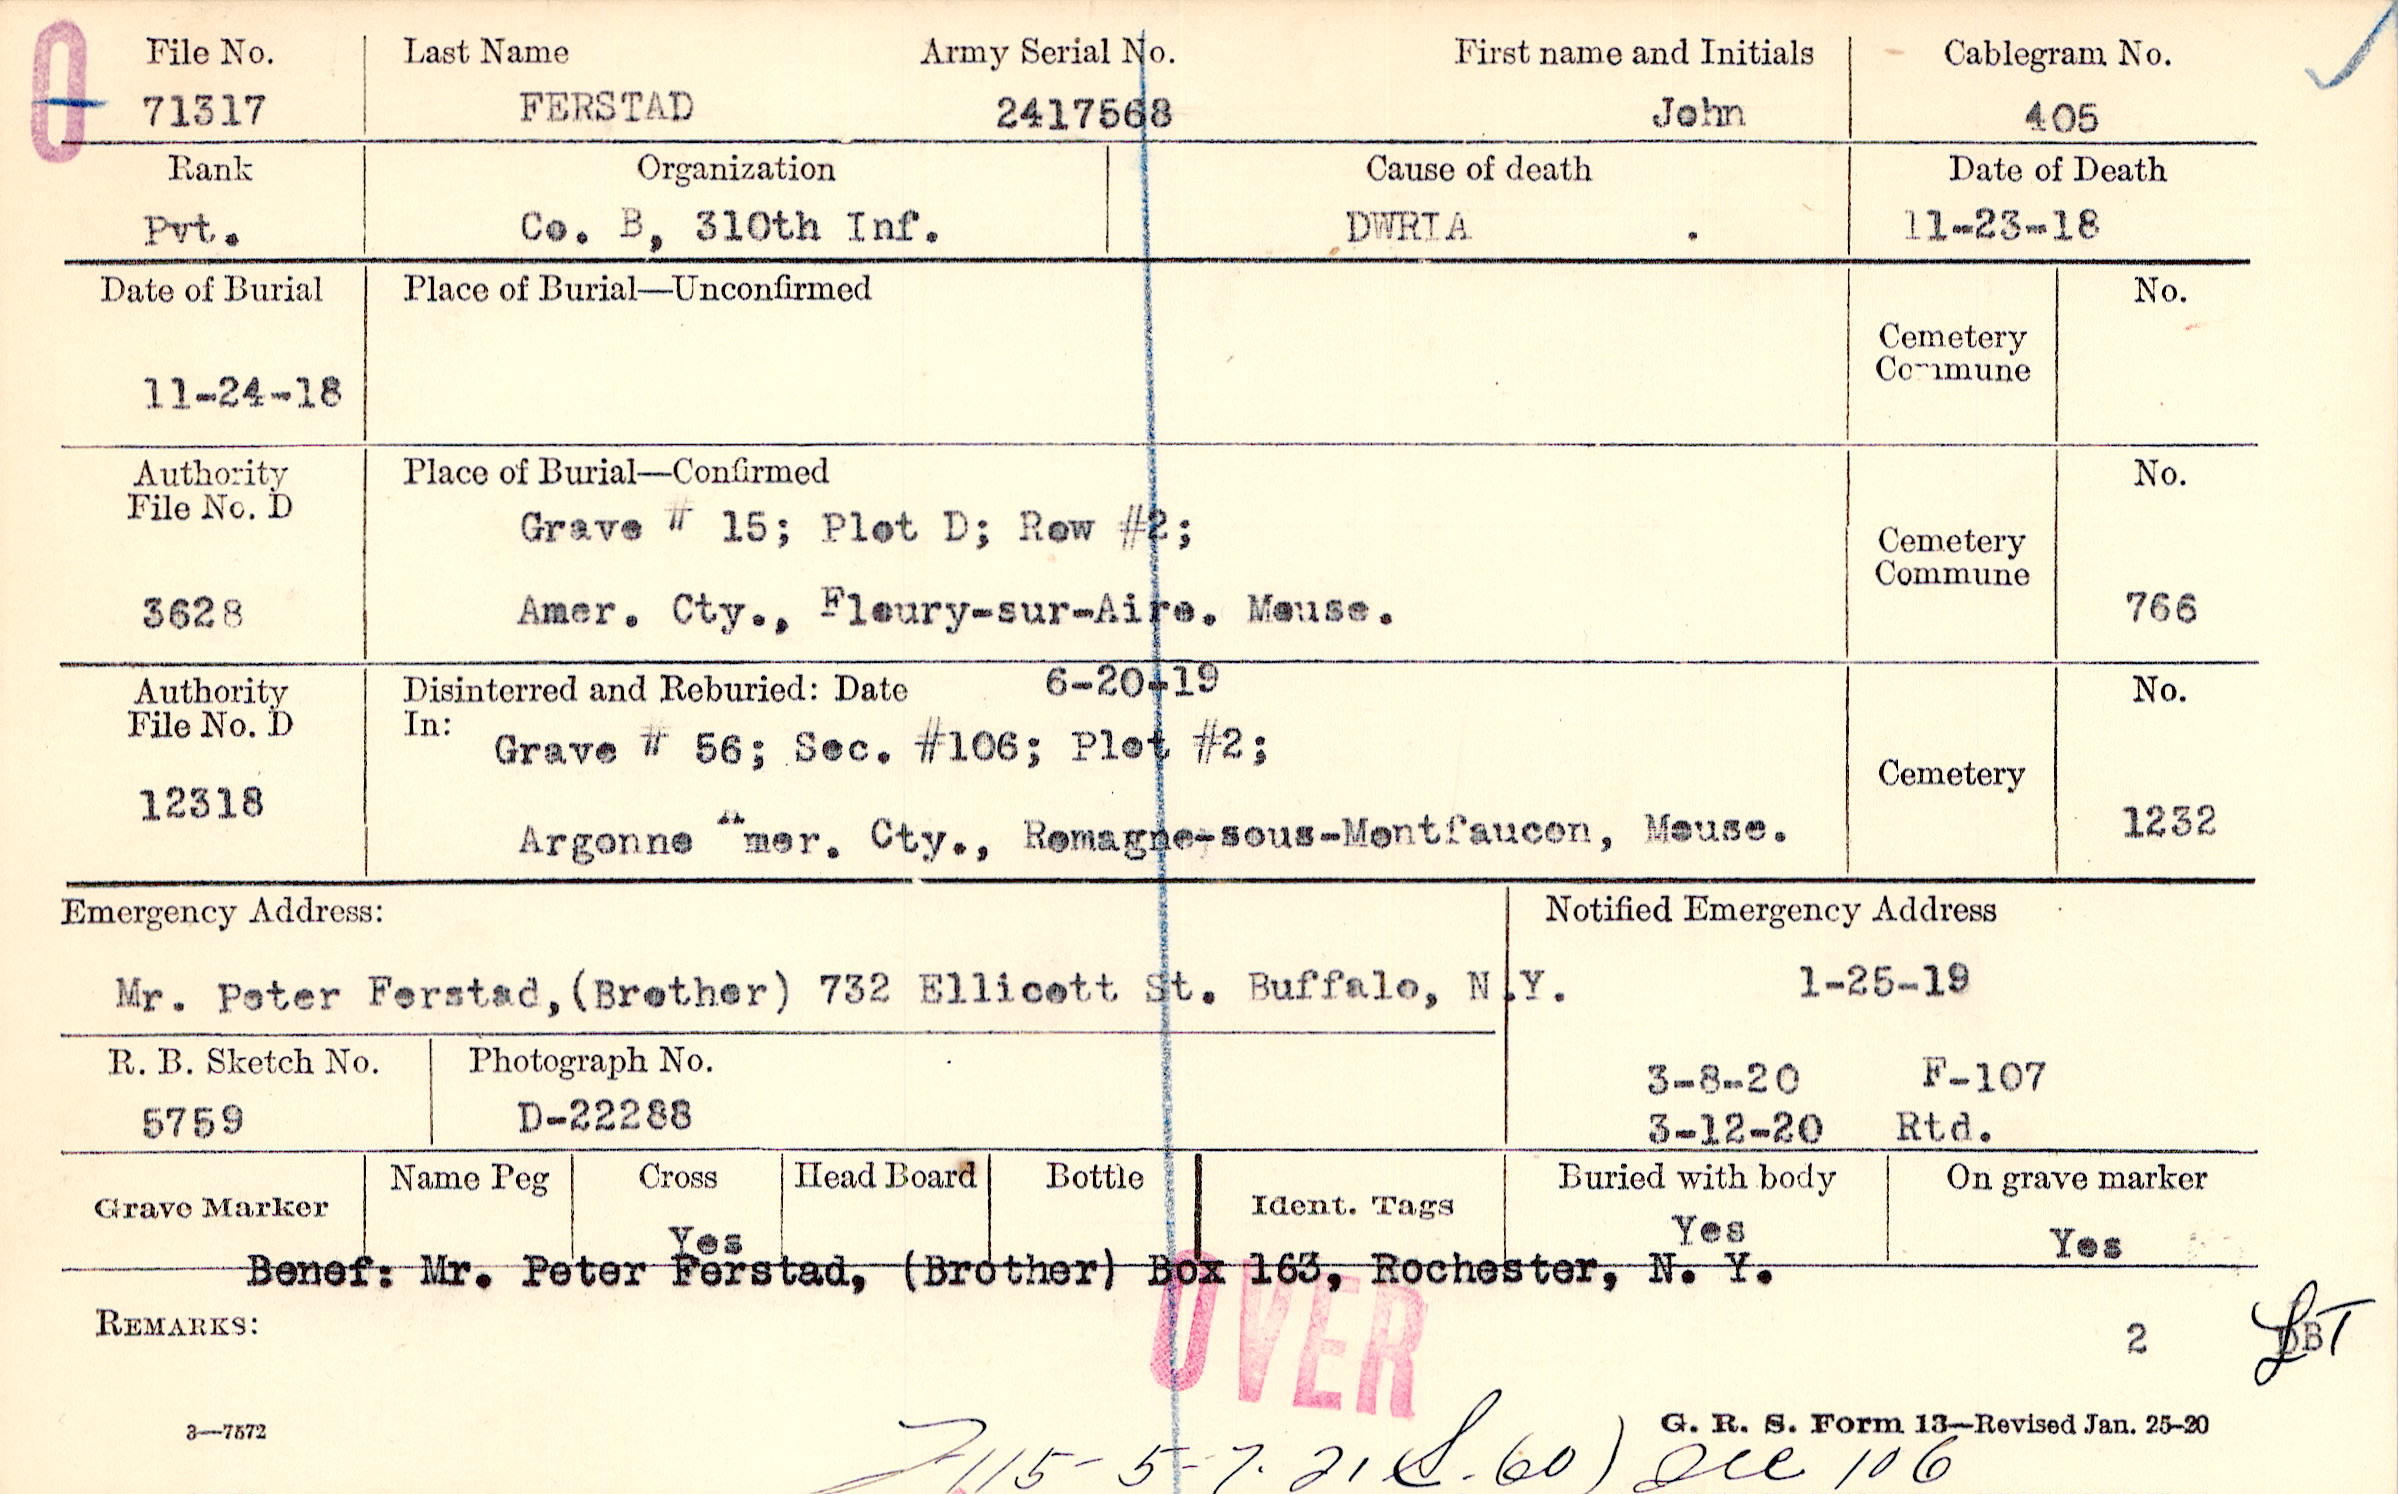 0
File No. Last Name Army Serial No. First name and Initials Cablegram No.
71317 FERSTAD 2417568 John 405
Rank Organization Cause of death Date of Death
Pvt. Co. B, 310th Inf. DWRIA . 11-23-18
Date of Burial Place of Burial—Unconfirmed No.
Cemetery
Commune
11-24-18
Authority Place of Burial—Confirmed No.
File No. D
Grave # 15; Plot D; Row #2;
Cemetery
Commune
3628 Amer. Cty., Fleury-sur-Aire. Meuse. 766
Authority Disinterred and Reburied: Date 6-20-19 No.
File No. D In:
Grave # 56; Sec. #106; Plot #2;
Cemetery
12318 Argonne Amer. Cty., Romagne-sous-Montfaucon, Meuse. 1232
Emergency Address: Notified Emergency Address
Mr. Peter Ferstad,(Brother) 732 Ellicott St. Buffalo, N.Y. 1-25-19
R. B. Sketch No. Photograph No. 3-8-20 F-107
5759 D-22288 3-12-20 Rtd.
Grave Marker Name Peg Cross Head Board Bottle Ident. Tags Buried with body On grave marker
Yes Yes Yes
Benef: Mr. Peter Ferstad, (Brother) Box 163, Rochester, N. Y.
REMARKS: 2
OVER
3—7572 G. R. S. Form 13—Revised Jan. 25-20
115- 5-7-21 S. 60) Sec 106